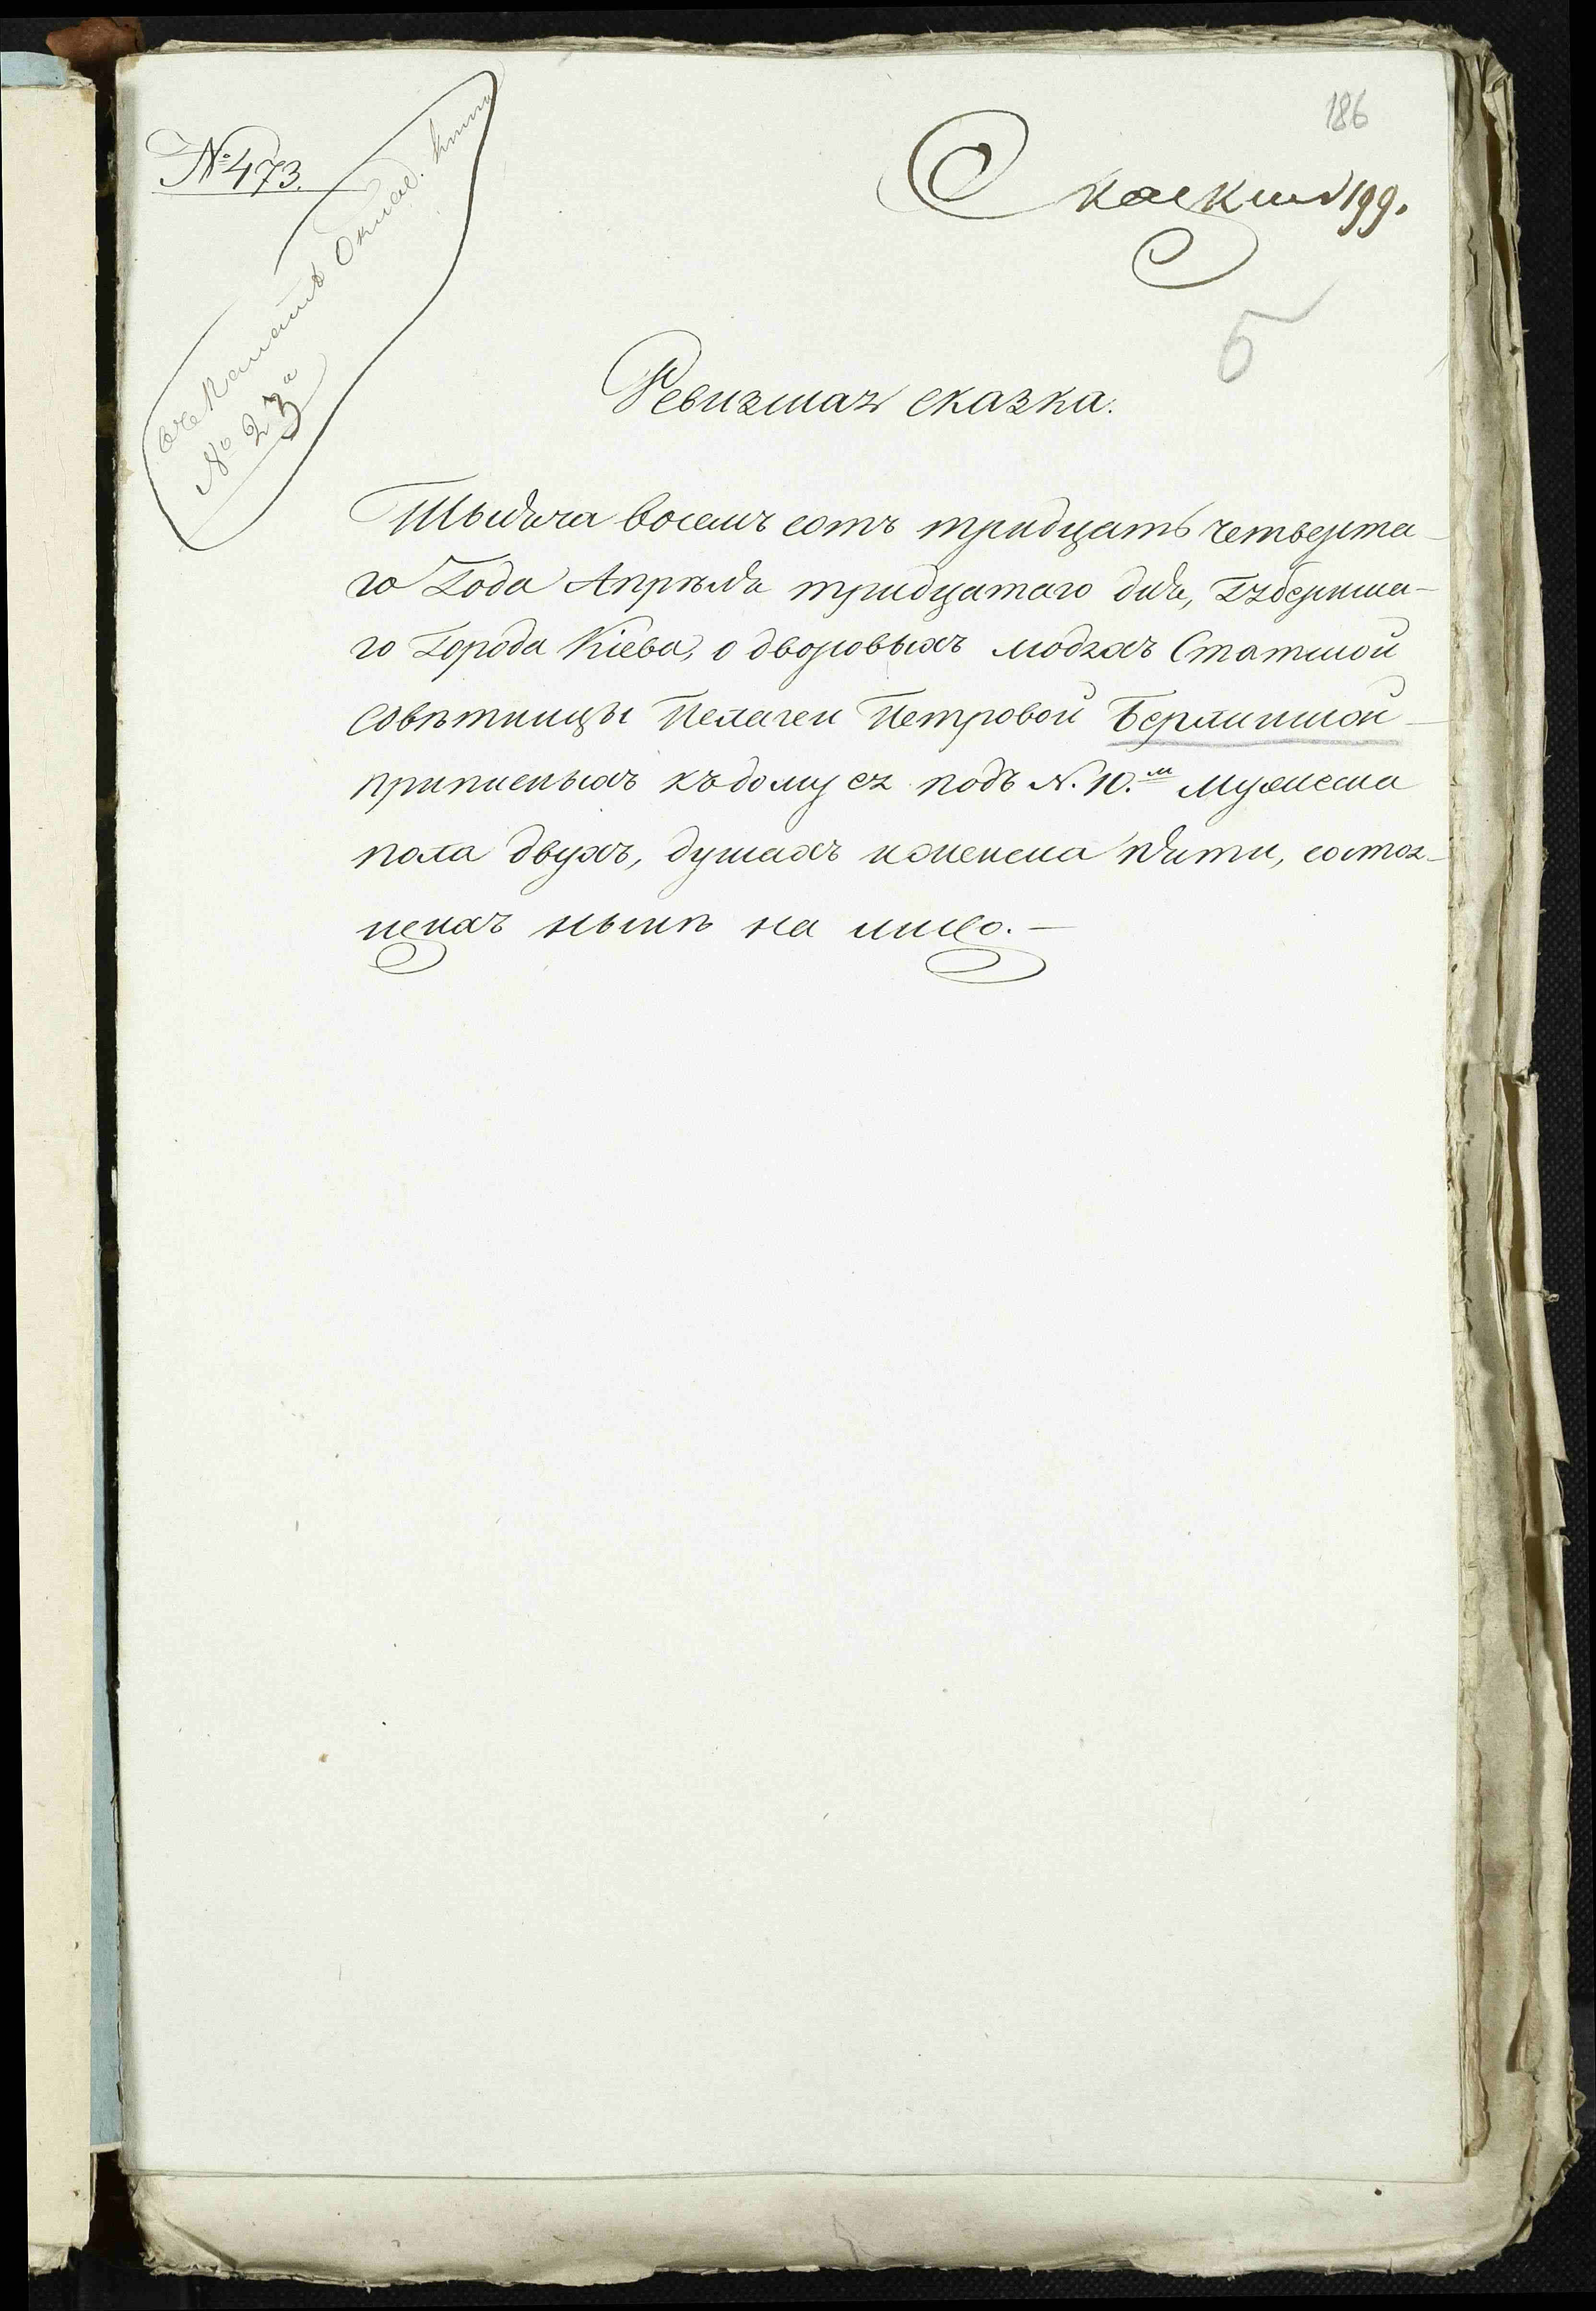 186
№ 473.
199.
Оклад. книги
№ 23
5
Ревизская сказка.
Тысяча восемъ сотъ тридцать четверта-
го Года Апрѣля тридцатаго дня, Губернска-
го Города Кіева, о дворовыхъ людяхъ Статской
совѣтницы Пелагеи Петровой Берлинской
приписныхъ къ дому ея подъ N. 10.м Мужеска
пола двухъ, душахъ и женска пяти, состоя-
щихъ нынѣ на лицо.-